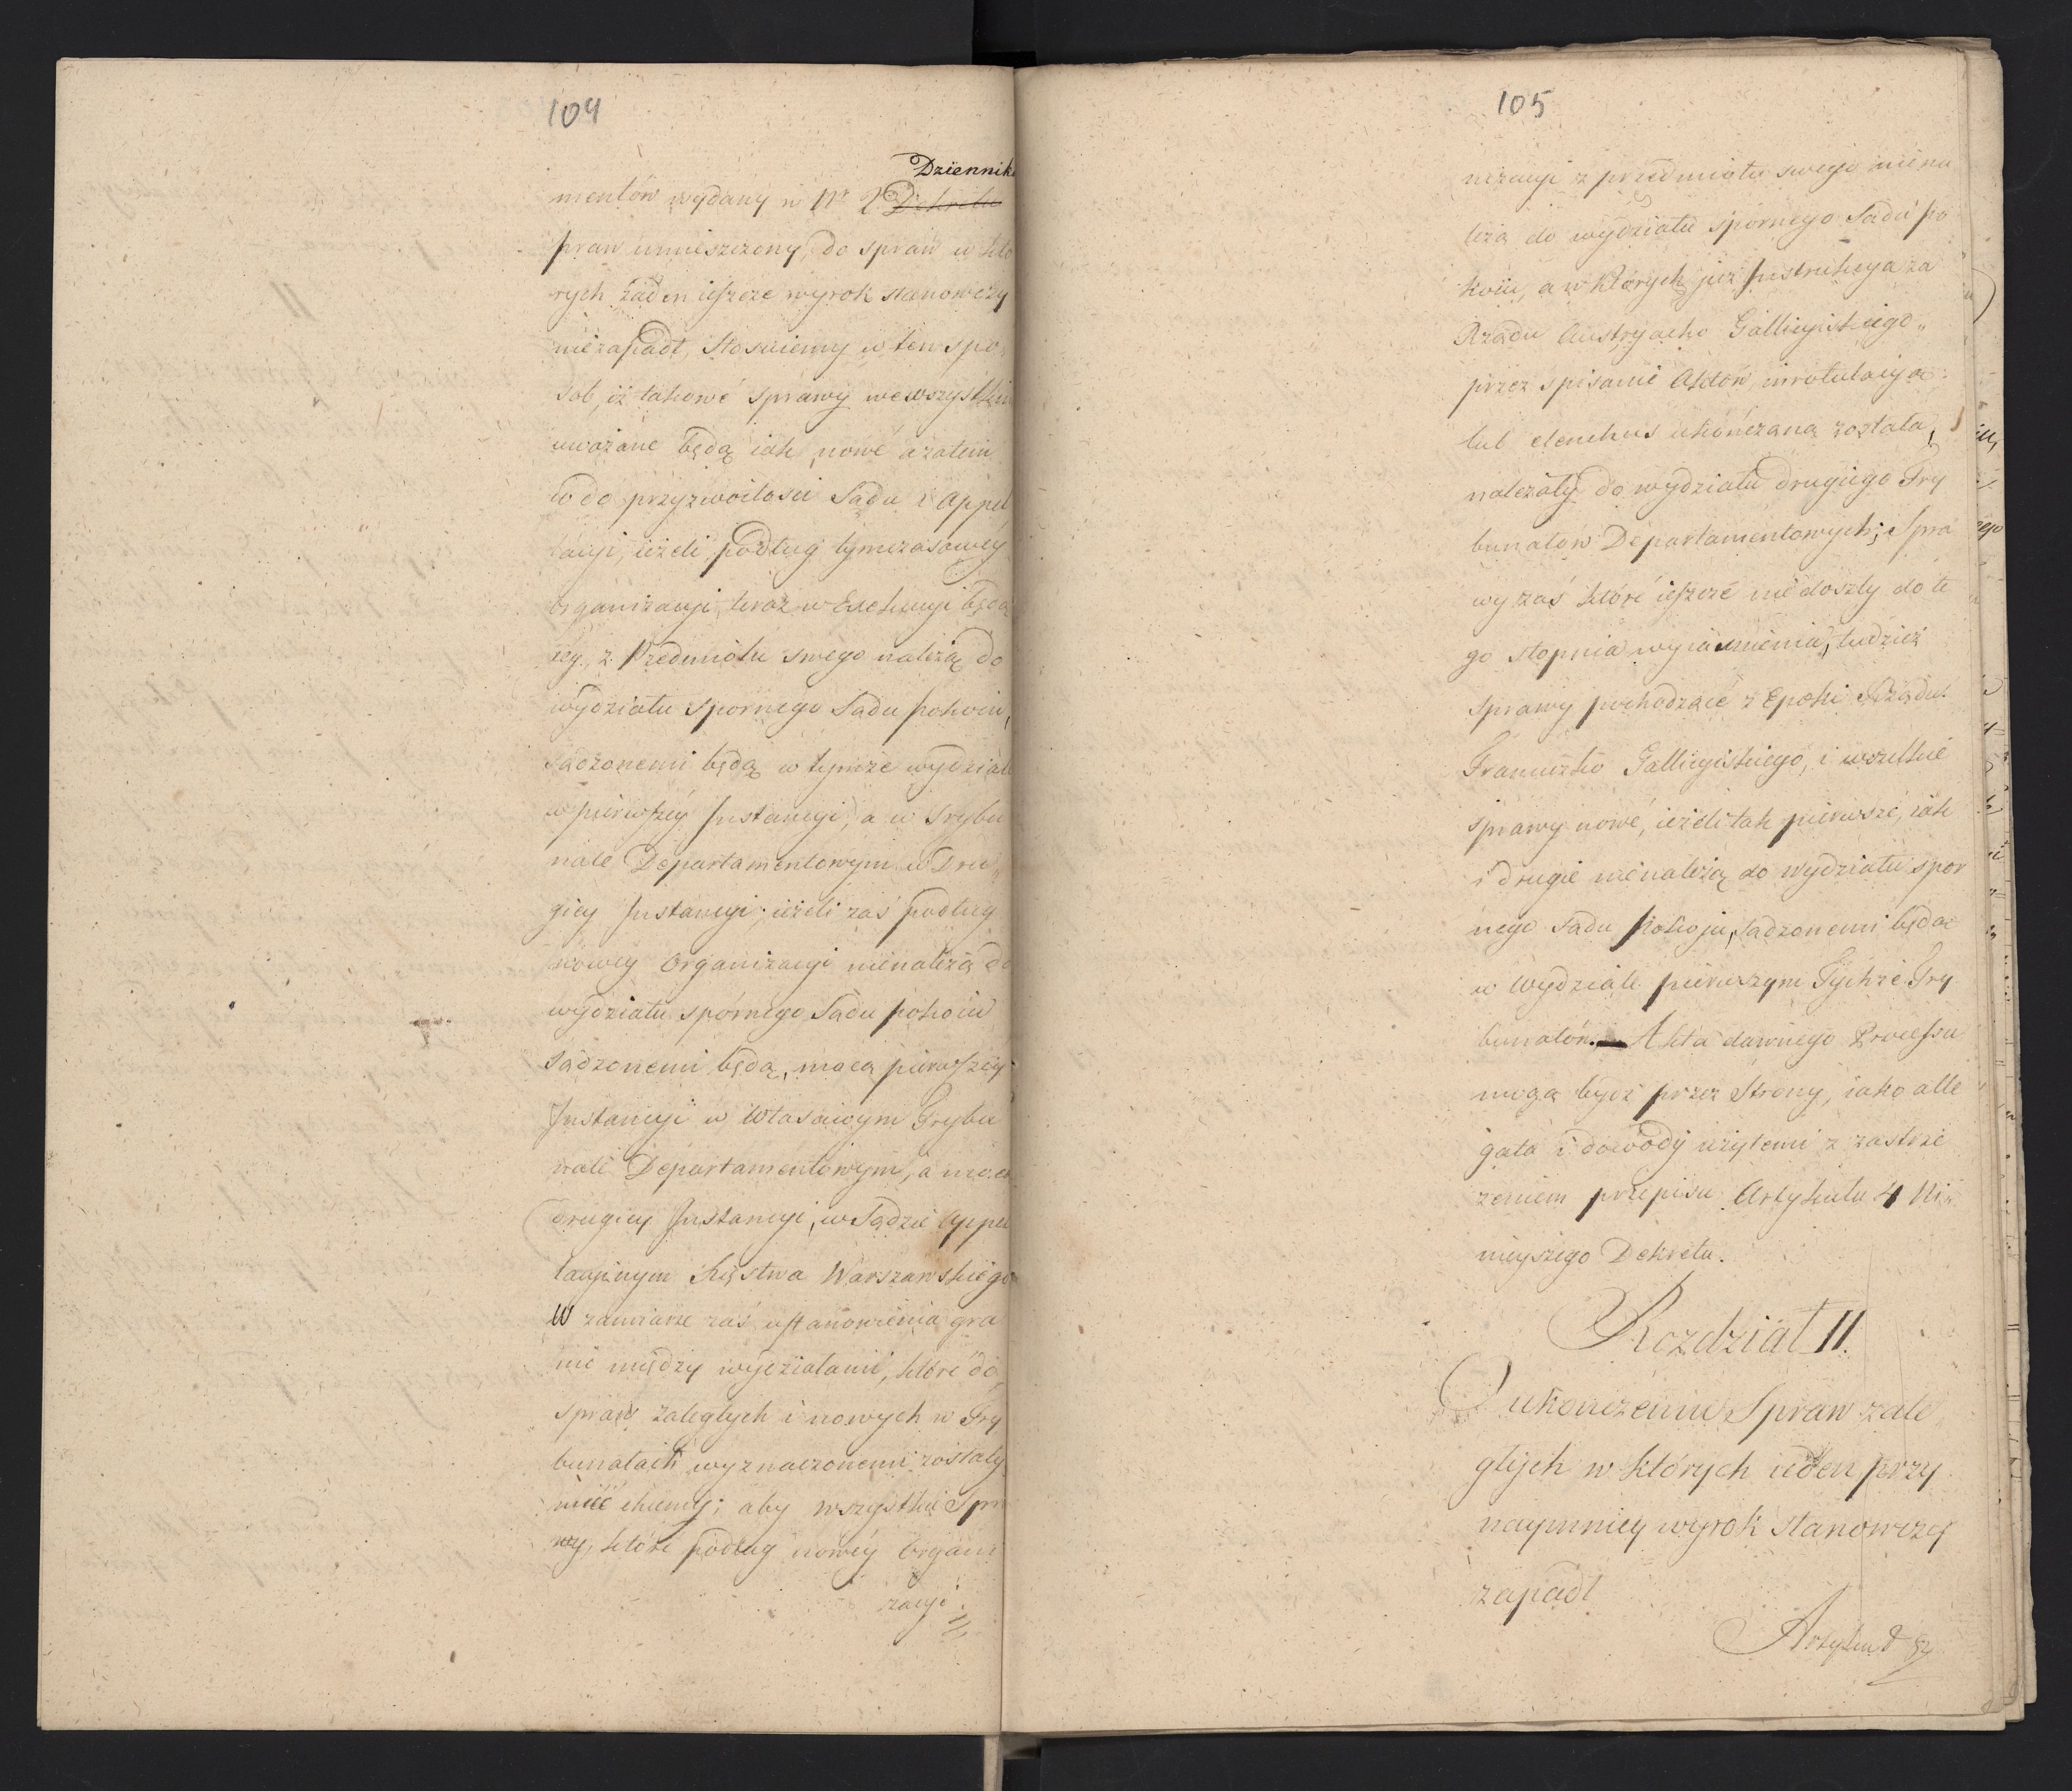 104
Dziennik
mentów wydany w Nr 2 Dekretu
praw umieszczony, do spraw w któ
rych żaden ieszcze wyrok stanowczy
niezapadł, Stosuiemy w ten spo
sob, iż takowe sprawy we wszystkim
uważane będą iak nowe a zatem
co do przyzwoitości Sądu i Appel
lacyi, ieżeli podług tymczasowéy
organizacyi, teraz w Exekucyi będą
cey, z Przedmiotu swego należą do
wydziału Spornego Sądu pokoiu,
sądzonemi będą w tymże wydziale
w pierwszéy Instancyi, a w Trybu
nale Departamentowym w Dru
giey Instancyi; ieżeli zaś podług
nowey Organizacyi nienależą do
wydziału spornego Sądu pokoiu
sądzonemi będą, mocą pierwszéy
Instancyi w Własciwym Trybu
nale Departamentowym, a mocą
drugiey Instancyi, w Sądzie Appel
lacyinym Xięstwa Warszawskiego
W zamiarze zaś ustanowienia gra
nic między wydziałami, które do
spraw zaległych i nowych w Try
bunałach wyznaczonemi zostały
mieć chcemy; aby wszystkie Spra
wy, które podług nowéy Organi
zacyi
105
nizacyi z przedmiotu swego niena
leżą do wydziału spornego Sądu po
koiu, a w których już Instrukcya za
Rządu Austryacko Gallicyiskiego
przez spisanie Aktów inrotulacya
lub elenchus ukończaną została,
należały do wydziału drugiego Try
bunałow Departamentowych; Spra
wy zaś które ieszcze niedoszły do te
go stopnia wyiaśnienia, tudzież
sprawy pochodzące z Epoki Rządu
Francuzko Gallicyiskiego, i wszelkie
sprawy nowe, ieżeli tak pierwsze, iak
i drugie nienależą do wydziału spor
nego Sądu Pokoju, sądzonemi będą
w Wydziale pierwszym Tychże Try
bunałów. Akta dawnego Processu
mogą bydź przez Strony, iako alle
gata i dowody użytemi z zastrze
zeniem przepisu Artykułu 4 Ni
nieyszego Dekretu.
Rozdział II.
O ukończeniu Spraw zale
głych w których ieden przy
naymniey wyrok stanowczy
zapadł
Artykuł 52